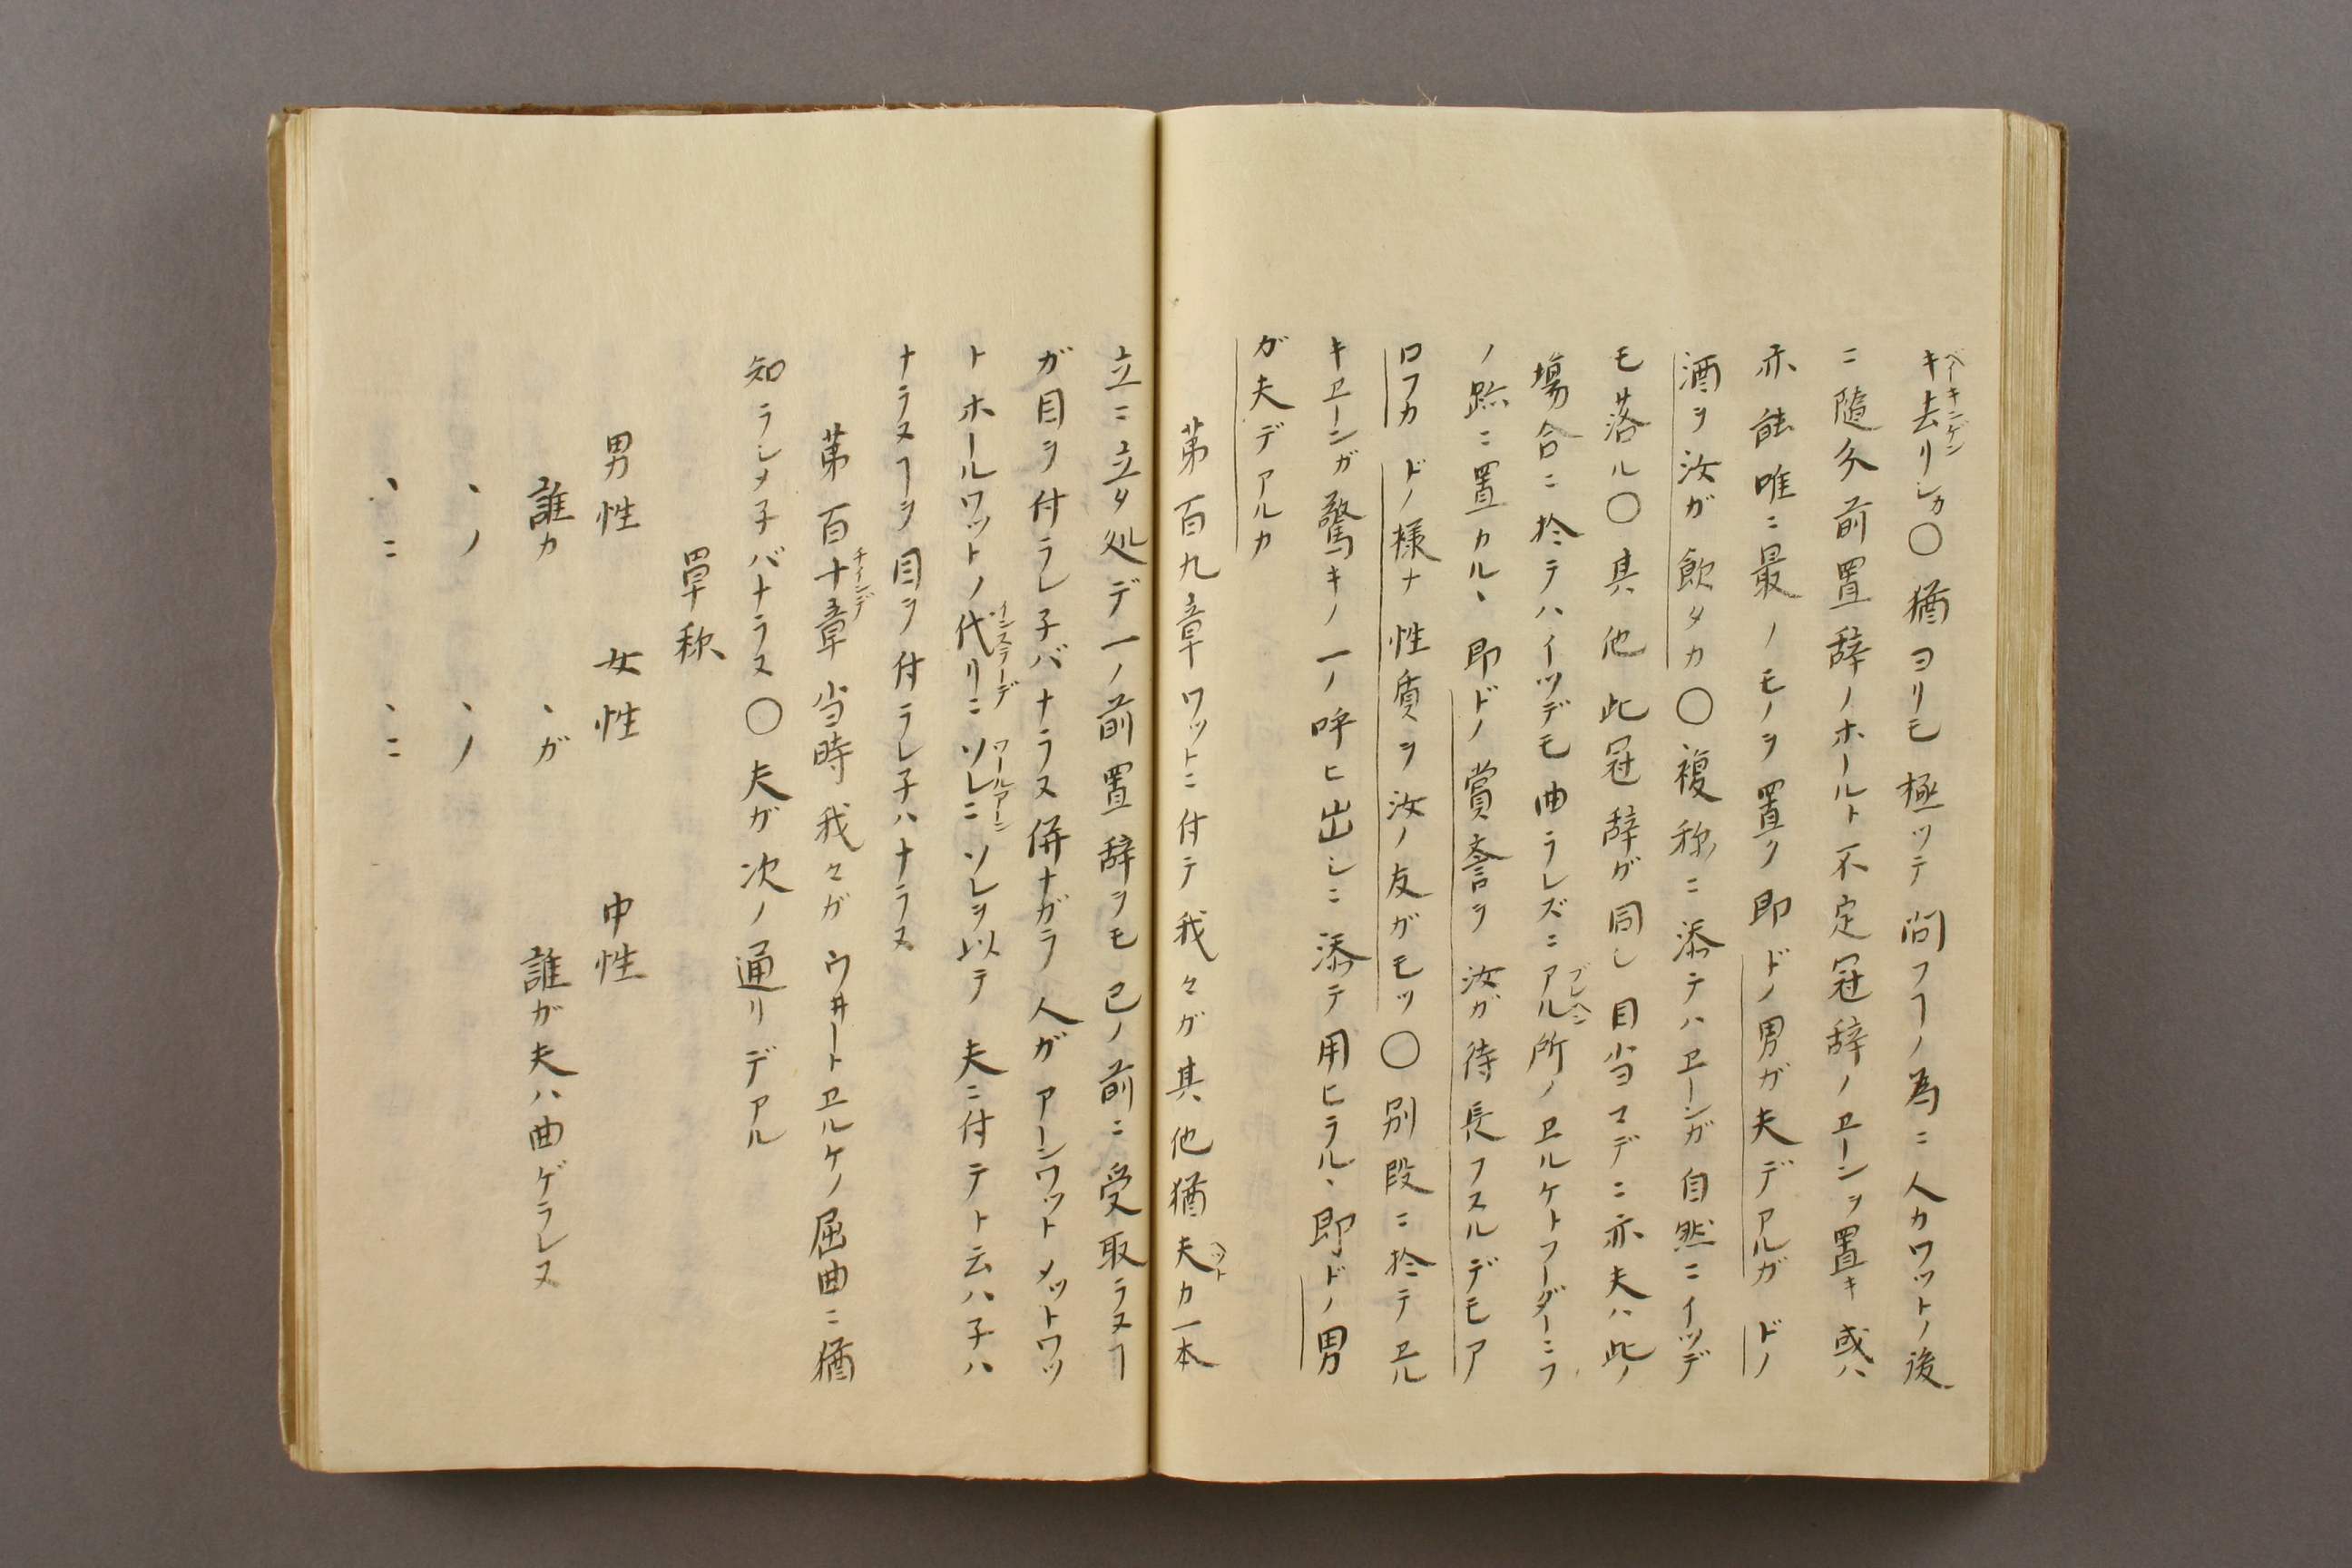 キ去リシカ〇猶ヨリモ極ツテ問フヿノ為ニ人カワットノ後
ベーキンゲン
ニ随分前置辞ノホールト不定冠辞ノヱーンヲ置キ或ハ
亦能唯ニ最ノモノヲ置ク即ドノ男ガ夫デアルガドノ
酒ヲ汝ガ飲タカ〇複称ニ添テハヱーンガ自然ニイツデ
モ落ル〇其他此冠辞ガ同シ目当マデニ亦夫ハ此ノ
場合ニ於テハイツデモ曲ラレズニアル所ノヱルケトフーダーニフ
ブレヘン
ノ跡ニ置カル丶即ドノ賞誉ヲ汝ガ待長フスルデモア
ロフカドノ様ナ性質ヲ汝ノ友ガモツ〇別段ニ於テヱル
キヱーンガ驚キノ一ノ呼ヒ出シニ添テ用ヒラル丶即ドノ男
ガ夫デアルカ
第百九章ワットニ付テ我々ガ其他猶夫カ一本
ヘット
立ニ立タ処デ一ノ前置辞ヲモ已ノ前ニ受取ラヌヿ
ガ目ヲ付ラレ子バナラヌ併ナガラ人ガアーンワットメットワッ
トホールワットノ代リニソレニソレヲ以テ夫ニ付テト云ハ子ハ
インステーデ ワールアーン
ナラヌヿヲ目ヲ付ラレ子ハナラヌ
第百十章当時我々ガウヰートヱルケノ屈曲ニ猶
チインデ
知ラシメ子バナラヌ〇夫ガ次ノ通リデアル
単称
男性 女性 中性
誰カ 丶ガ 誰ガ夫ハ曲ゲラレヌ
丶ノ 丶ノ
丶ニ 丶ニ